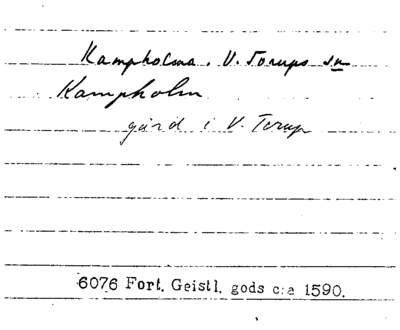 Kampholma. V. Torups sn
Kampholm
gård i V. Torup
6076 Fort. Geistl. gods c:a 1590.